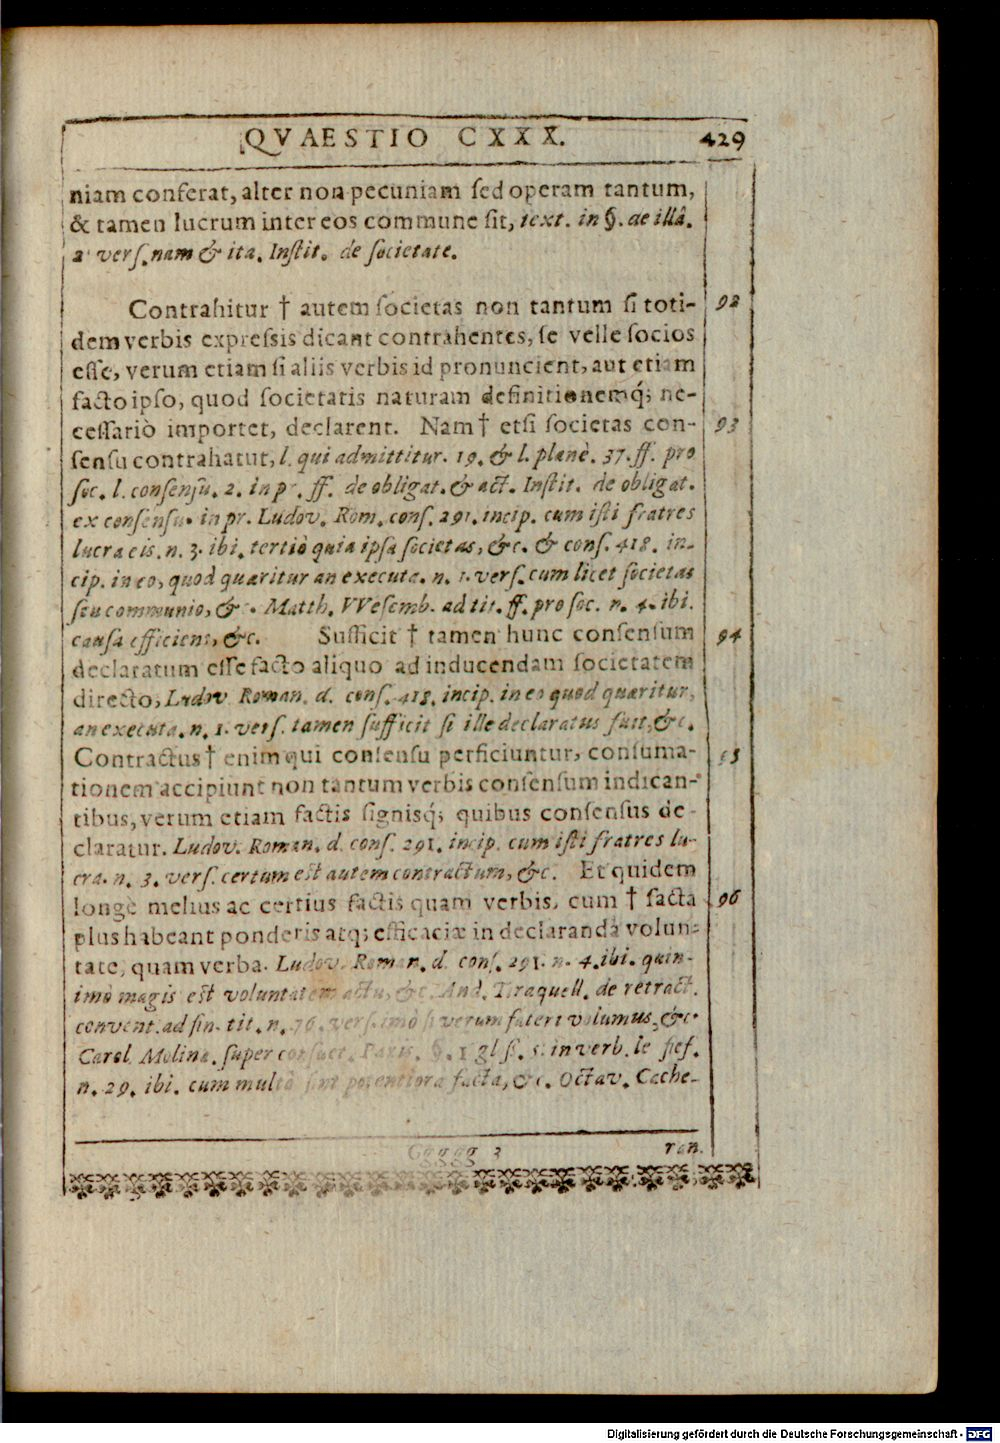 QVAESTIO CXXX. 429
niam conferat, alter non pecuniam sed operam tantum,
& tamen lucrum inter eos commune sit, text. in §. de illâ.
2 vers. nam & ita. Instit. de societate.
Contrahitur † autem societas non tantum si toti- 92
dem verbis expressis dicant contrahentes, se velle socios
esse, verum etiam si aliis verbis id pronuncient, aut etiam
facto ipso, quod societatis naturam definitionemq́; ne-
cessariò importet, declarent. Nam † etsi societas con- 93
sensu contrahatur, l. qui admittitur. 19. & l. planè. 37. ff. pro
soc. l. consensu. 2. in pr. ff. de obligat. & act. Instit. de obligat.
ex consensu. in pr. Ludov. Rom. cons. 291. incip. cum isti fratres
lucra eis. n. 3. ibi. tertiò quia ipsa societas, &c. & cons. 418. in-
cip. in eo, quod quæritur an executa. n. 1. vers. cum licet societas
seu communio, &c. Matth. VVesemb. ad tit. ff. pro soc. n. 4. ibi.
causa efficiens, &c. Sufficit † tamen hunc consensum 94
declaratum esse facto aliquo ad inducendam societatem
directo, Ludov. Roman. d. cons. 418. incip. in eo quod quæritur,
an executa. n. 1. vers. tamen sufficit si ille declaratus fuit, &c.
Contractus † enim qui consensu perficiuntur, consuma- 95
tionem accipiunt non tantum verbis consensum indican-
tibus, verum etiam factis signisq́; quibus consensus de-
claratur. Ludov. Roman. d. cons. 291. incip. cum isti fratres lu-
cra. n. 3. vers. certum est autem contractum, &c. Et quidem
longè melius ac certius factis quam verbis, cum † facta 96
plus habeant ponderis atq; efficaciæ in declarandâ volun-
tate, quam verba. Ludov. Roman. d. cons. 291. n. 4. ibi. quin-
imò magis est voluntatem actu, &c. And. Tiraquell. de retract.
convent. ad fin. tit. n. 76. vers. imò si verum fateri volumus, &c.
Carol. Molina. super consuet. Paris. §. 1 gl s. 5. in verb. le fief.
n. 29. ibi. cum multò sint potentiora facta, &c. Octav. Cache-
Ggggg 3 ran.
Digitalisierung gefördert durch die Deutsche Forschungsgemeinschaft - DFG